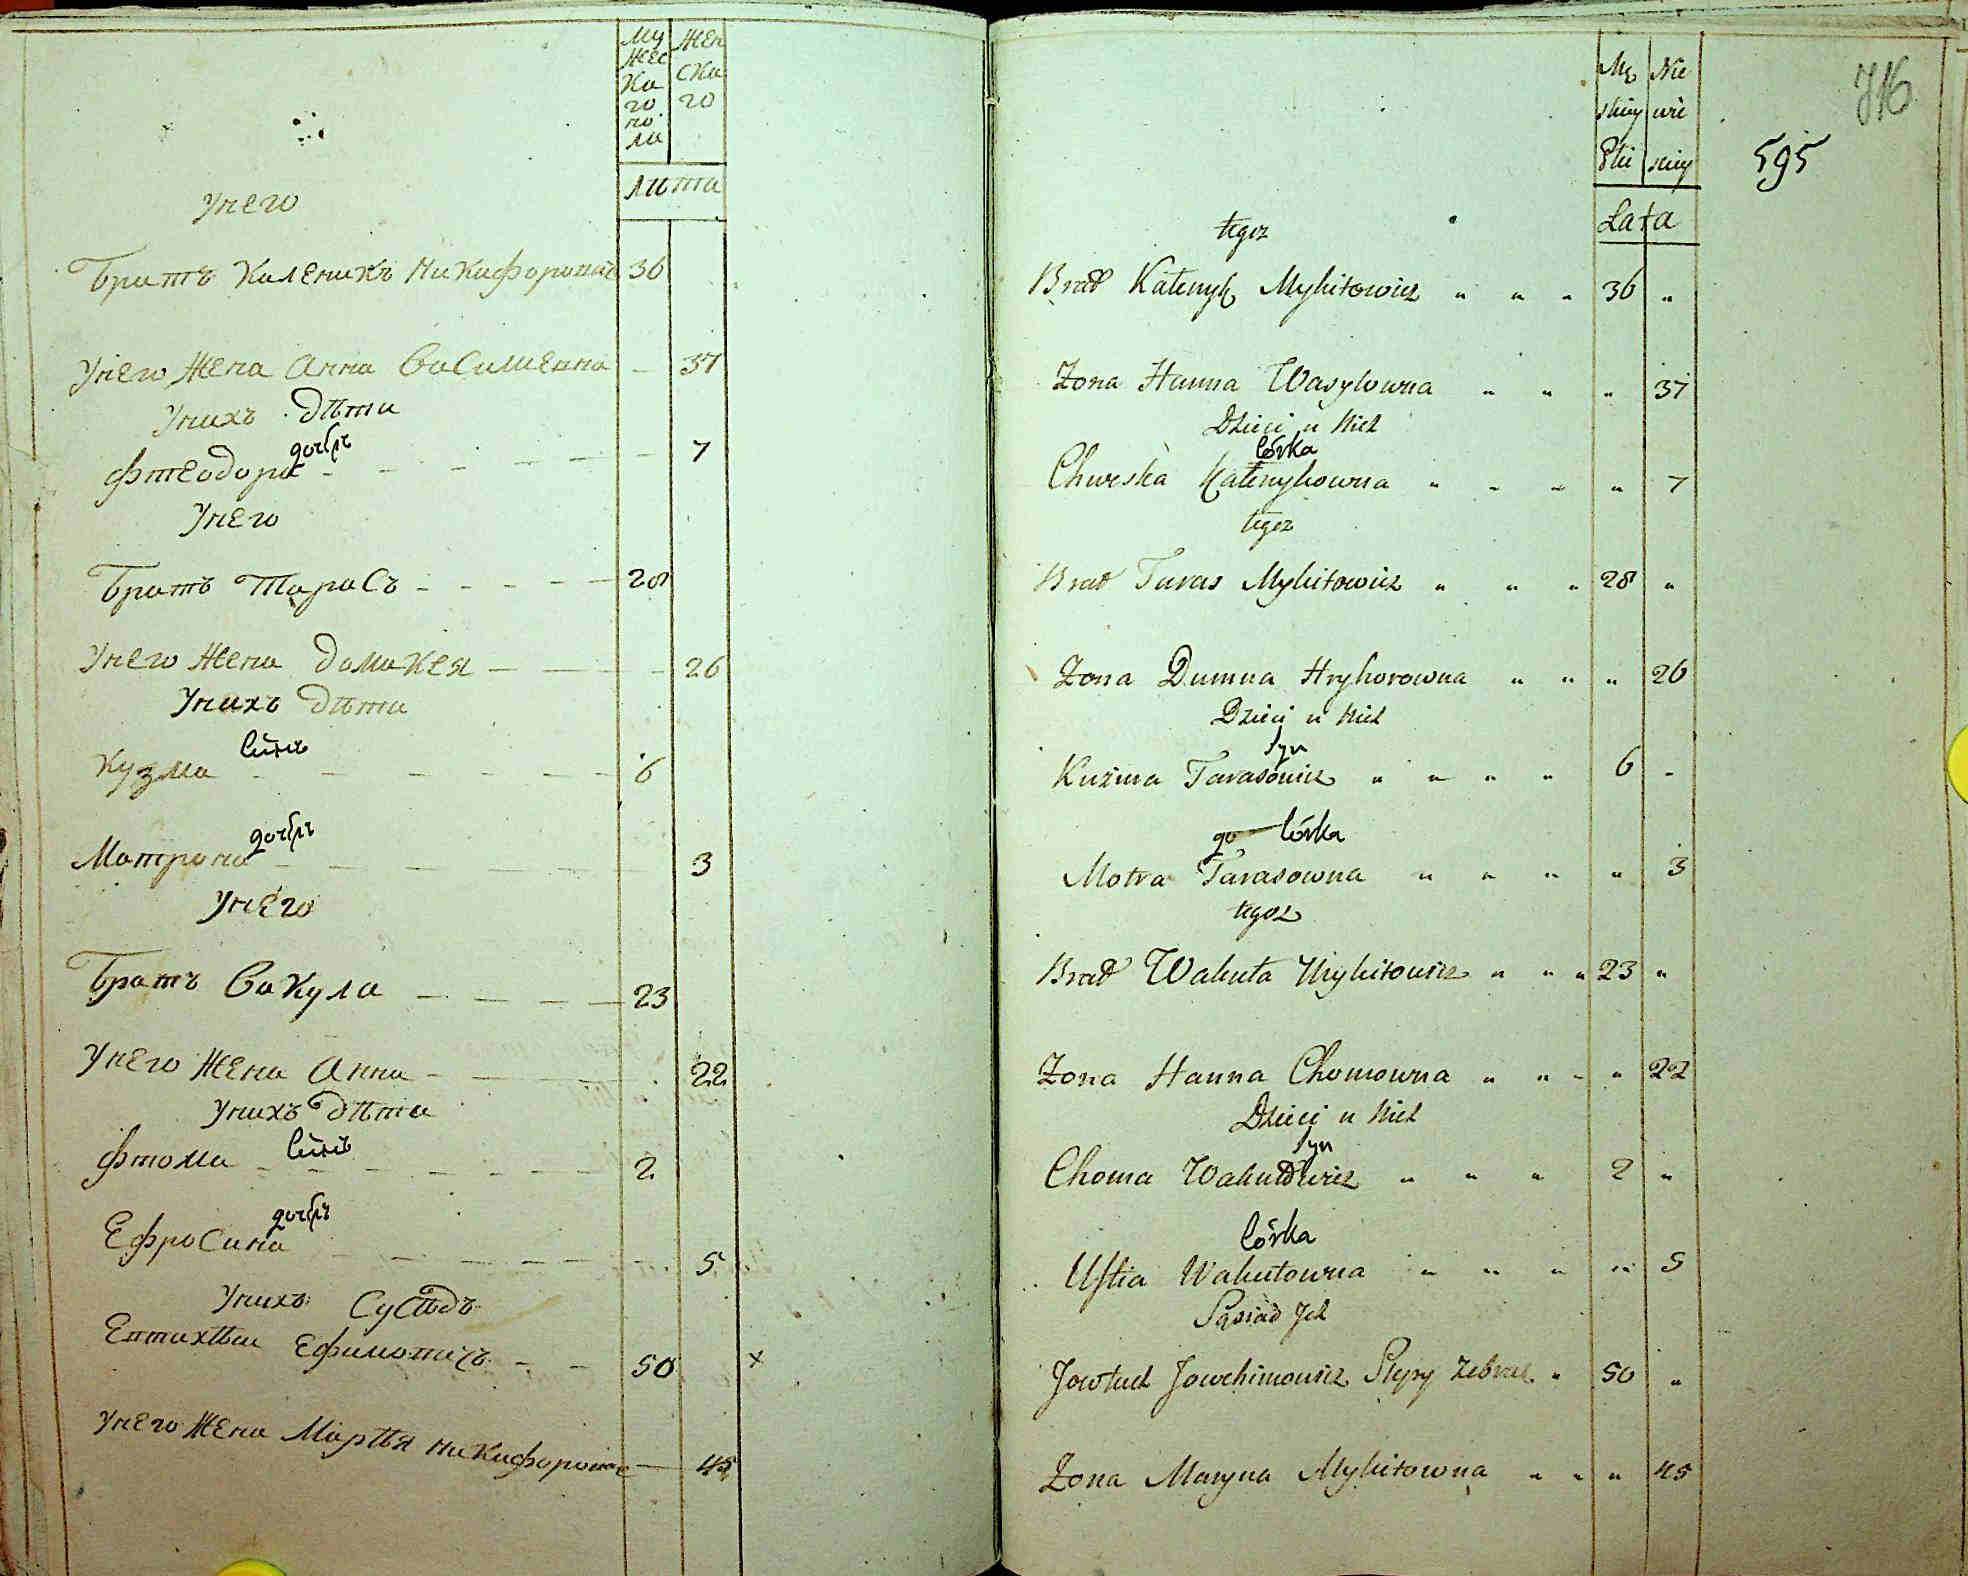 Му Жен
жес ска
ка го
го
по
ла
лита
Унего
Братъ Каленикъ Никифоровичъ 36
Унего жена Анна Василиевна – 37
Унихъ дѣти
дочерь
Фтеодора - - - - - - 7
Унего
Братъ Тарасъ - - - - - 28
Унего жена Домикея — — — - 26
Унихъ дѣти
синъ
Кузма - - - - - - 6
дочерь
Матрона - - - - - - 3
Унего
Братъ Вакула - - - - 23
Унего жена Анна - — — 22
Унихъ дѣти
синъ
Фтома - - - - - - 2
дочерь
Ефросина - - - - - - 5
Унихъ Сусѣдъ
Евтихѣи Ефимовичъ - - 50 x
Унего жена Марѣя Никифоровна — 45
716
Mę Nie
skiey wie
Płci skiey
595
Lata
tegoz
Brat Kałenyk Mykitowicz " " " 36 "
Zona Hanna Wasylowna " " " 37
Dzieci u Nich
Córka
Chweska Kałenykowna " " " " 7
tegoz
Brat Taras Mykitowicz " " " 28 "
Zona Dumna Hryhorowna " " " 26
Dzieci u Nich
Syn
Kuzma Tarasowicz " " " " 6 -
до Córka
Motra Tarasowna " " " " 3
tegoz
Brat Wakuła Mykitowicz " " " 23 "
Zona Hanna Chomowna " " " " 22
Dzieci u Nich
Syn
Choma Wakułowicz " " " 2 "
Córka
Ustia Wakułowna " " " " 5
Sąsiad Ich
Jowtuch Jowchimowicz Slepy Zebrak " 50 "
Zona Maryna Mykitowna " " " 45